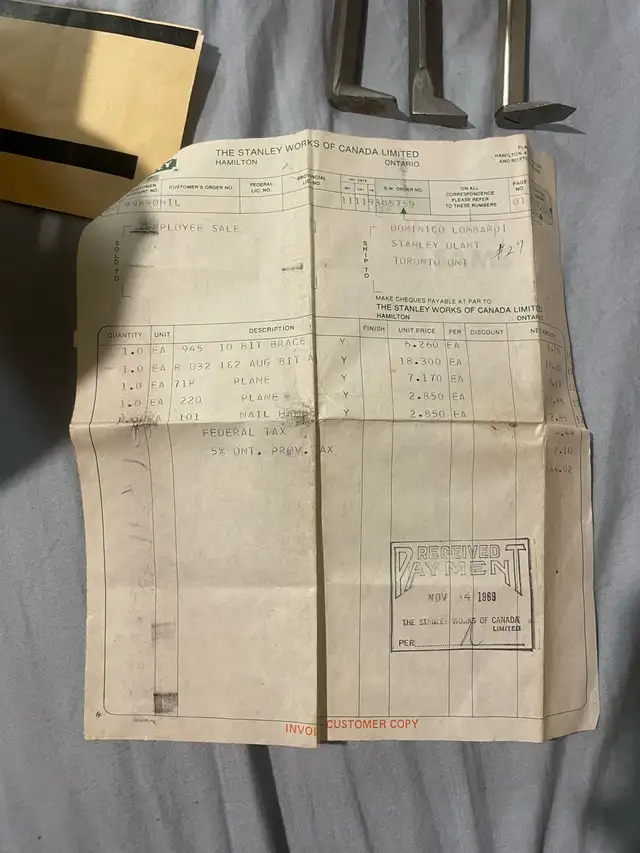 THE STANLEY WORKS OF CANADA LIMITED
HAMILTON ONTARIO
HAMILTON &
CUSTOMER'S ORDER NO. FEDERAL LIC. NO. PROVINCIAL LIC. NO. S.W. ORDER NO. ON ALL CORRESPONDENCE PLEASE REFER TO THESE NUMBERS PAGE NO.
01
SOLD TO
MPLOYEE SALE
SHIP TO
DOMINICO LOMBARDI
STANLEY OLANT
TORONTO ONT
MAKE CHEQUES PAYABLE AT PAR TO
THE STANLEY WORKS OF CANADA LIMITED
HAMILTON ONTARI
QUANTITY UNIT DESCRIPTION FINISH UNIT PRICE PER DISCOUNT NET AMOUNT
1.0 EA 945 10 BIT BRACE Y 6.260 EA
1.0 EA R D32 1&2 AUG BIT A Y 18.300 EA
1.0 EA 71P PLANE Y 7.170 EA
1.0 EA 220 PLANE Y 2.850 EA
EA 101 NAIL Y 2.850 EA 2.85
FEDERAL TAX
5% ONT. PROV. TAX 2.10
RECEIVED
PAYMENT
NOV 4 1969
THE STANLEY WORKS OF CANADA
LIMITED
PER
INVOI CUSTOMER COPY